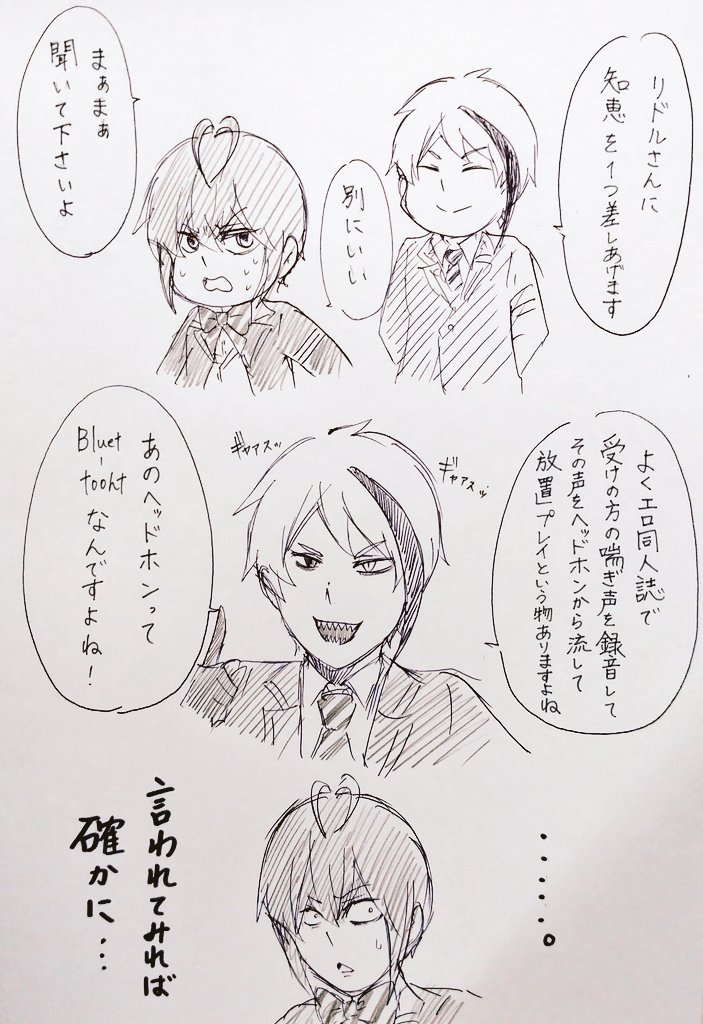 リドルさんに
知恵を1つ差しあげます
別にいい
まぁまぁ
聞いて下さいよ
よくエロ同人誌で
受けの方の喘ぎ声を録音して
その声をヘッドホンから流して
放置プレイという物ありますよね
ギャアスッ
ギャアスッ
あのヘッドホンって
Bluet-
tooht
なんですよね!
・・・・・・。
言われてみれば
確かに・・・